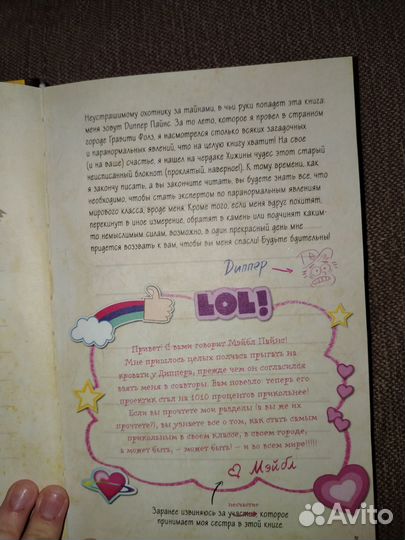 Неустрашимому охотнику за тайнами, в чьи руки попадет эта книга:
меня зовут Диппер Пайнс. За то лето, которое я провел в странном
городе Гравити Фолз, я насмотрелся столько всяких загадочных
и паранормальных явлений, что на целую книгу хватит! На свое
(и на ваше) счастье, я нашел на чердаке Хижины чудес этот старый
неисписанный блокнот (проклятый, наверное!). К тому времени, как
я закончу писать, а вы закончите читать, вы будете знать все, что
необходимо, чтобы стать экспертом по паранормальным явлениям
мирового класса, вроде меня. Кроме того, если меня вдруг похитят,
перекинут в иное измерение, обратят в камень или подчинят каким-
то немыслимым силам, возможно, в один прекрасный день мне
придется воззвать к вам, чтобы вы меня спасли! Будьте бдительны!
Диппер
LOL!
Привет! С вами говорит Мэйбл Пайнс!
Мне пришлось целых полчаса прыгать на
кровати у Диппера, прежде чем он согласился
взять меня в соавторы. Вам повезло: теперь его
проектик стал на 1010 процентов прикольнее!
Если вы прочтете мои разделы (а вы же их
прочтете?), вы узнаете все о том, как стать самым
прикольным в своем классе, в своем городе,
а может быть, – может быть! – и во всем мире!!!!!
Мэйбл
несчастие
Заранее извиняюсь за участие, которое
принимает моя сестра в этой книге.
Avito